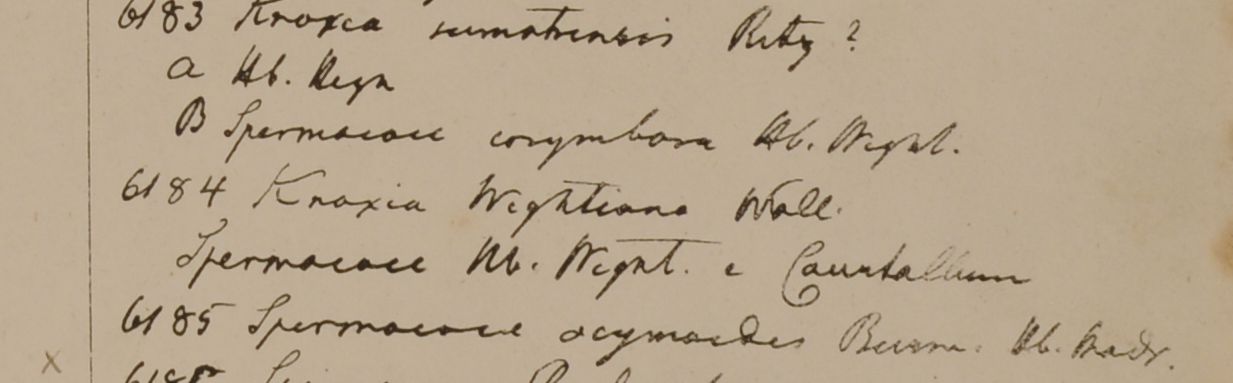 6183 Knoxia sumatrensis Retz?
a Hb. Heyn
B Spermacoce corymbosa Hb. Wight.
6184 Knoxia Wightiana Wall.
Spermacoce Hb. Wight. e Courtallum
6185 Spermacoce ocymoides Burm. Hb. Madr.
x